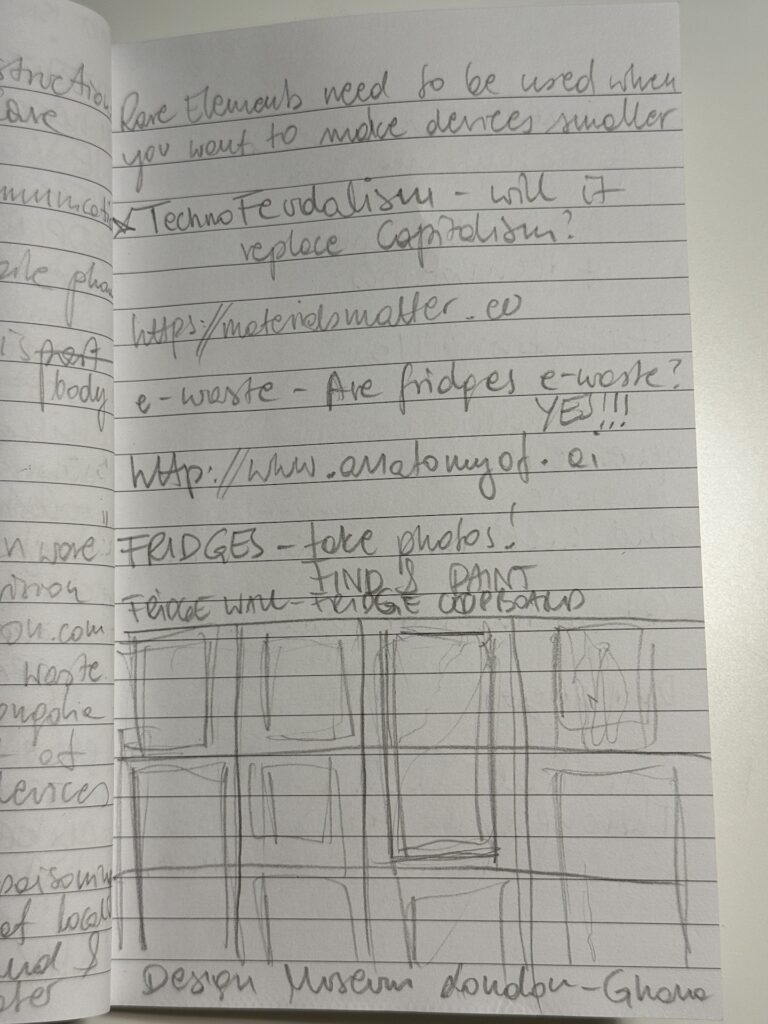 struction
Rare Elements need to be used when
you want to make devices smaller
TechnoFeudalism - will it
replace Capitalism?
https://materialsmatter.eu
is part
body
e-waste - Are fridges e-waste?
YES!!!
http://www.anatomyof.ai
FRIDGES - take photos!
FIND & PAINT
FRIDGE WALL - FRIDGE CUPBOARD
on.com
waste
of
devices
of local
Design Museum London - Ghana